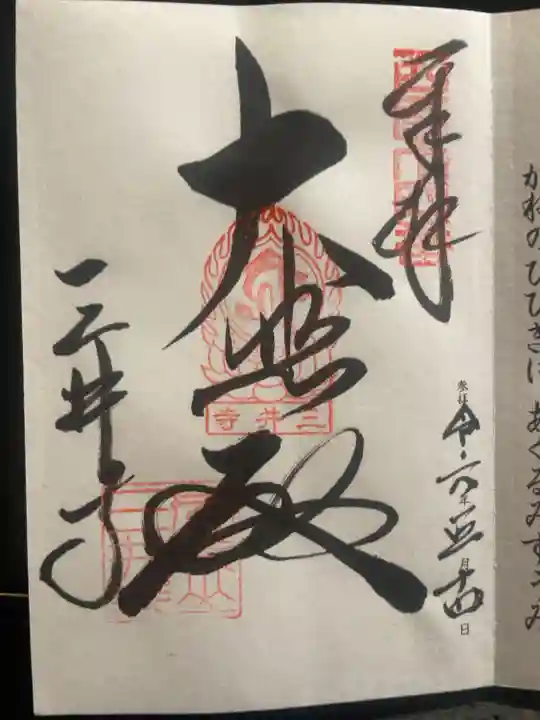 かねのひびきに あくるみずうみ
奉拝
参拝 令・六年五月十四日
大悲殿
三井寺
三井寺